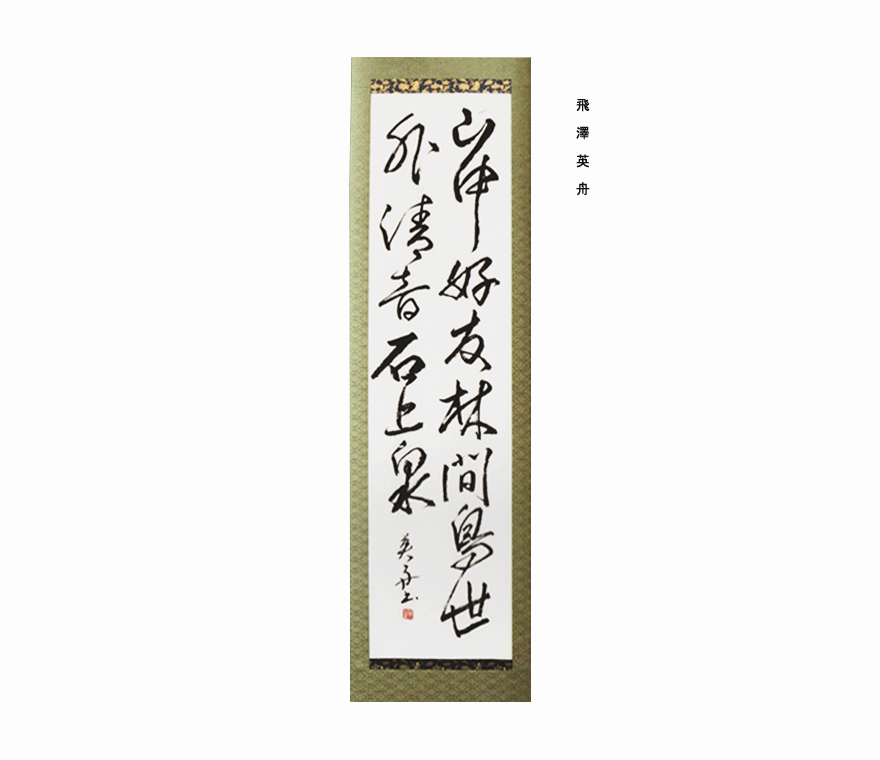 飛澤英舟
山中好友林間鳥世
外清音石上泉
英舟書